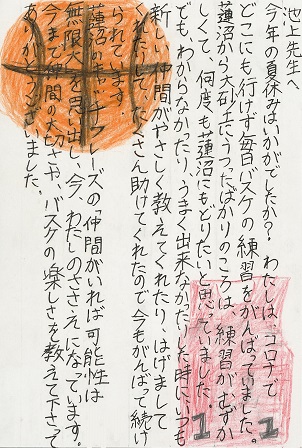 池上先生へ
今年の夏休みはいかがでしたか？わたしは、コロナで
どこにも行けず毎日バスケの練習をがんばっていました。
蓮沼から大砂土にうつったばかりのころは、練習がむずか
しくて、何度も蓮沼にもどりたいと思っていました。
でも、わからなかったり、うまく出来なかったりした時に、いつも
新しい仲間がやさしく教えてくれたり、はげまして
くれたりして、たくさん助けてくれたので今もがんばって続け
られています。
蓮沼のキャッチフレーズの「仲間がいれば可能性は
無限大」を思い出し、今、わたしのささえになっています。
今まで仲間の大切さや、バスケの楽しさを教えて下さって
ありがとうございました。
11